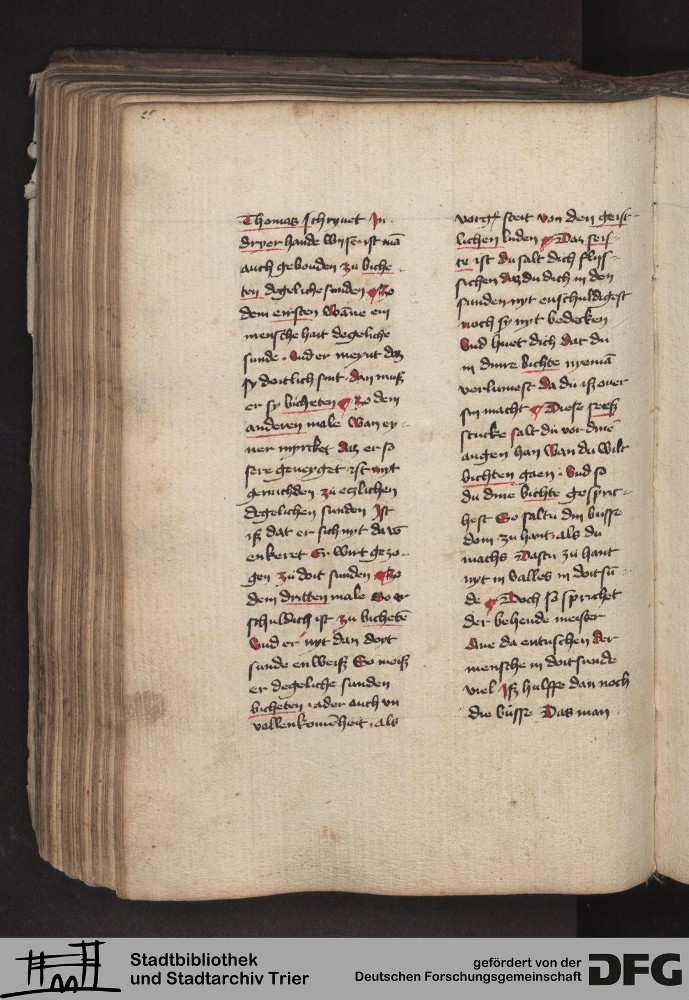 Thomas schryuet In
dryer hande wyse ist mā
auch gebonden zu biche
ten degeliche sunden zo
dem eirsten Wāne ein
mensche hait degeliche
sunde vnd er meynt daz
sy doitlich sint dan muß
er sy bicheten zo dem
anderen male Wan ey
ner myrcket daz er so
sere geneyget ist myt
genuchden zu etzlichen
degelichen sunden Ist
iß dat er sich nyt dar
en keret Er wirt gezo
gen zu doit sunden zo
dem dritten male So er
schuldich ist zu bichetē
Vnd er nyt dan doyt
sunde en weiß So moiß
er degeliche sunden
bicheten ader auch vn
vollenkomēheit als
steit von den geist
lichen luden Daz seis
te ist du salt dich flijs
sichen daz du dich in den
sunden nyt enschuldigest
noch sy nyt bedecken
Vnd huet dich dat du
in dinre bichte nyemā
verlumest da du iß ouer
sin macht Diese seeß
stucke salt du vor dinē
augen han Wan du wilt
bichten gaen Vnd so
du dine bichte gespric
hest So saltu din busse
doin zu hant als du
machs Dastu zu hant
nyt in valles in doit sū
de Doch so sprichet
der behende meister
Aue da entuschen der
mensche in doit sunde
viel Iß hulffe dan noch
die büsse Das man
Stadtbibliothek
und Stadtarchiv Trier
gefördert von der
Deutschen Forschungsgemeinschaft
DFG